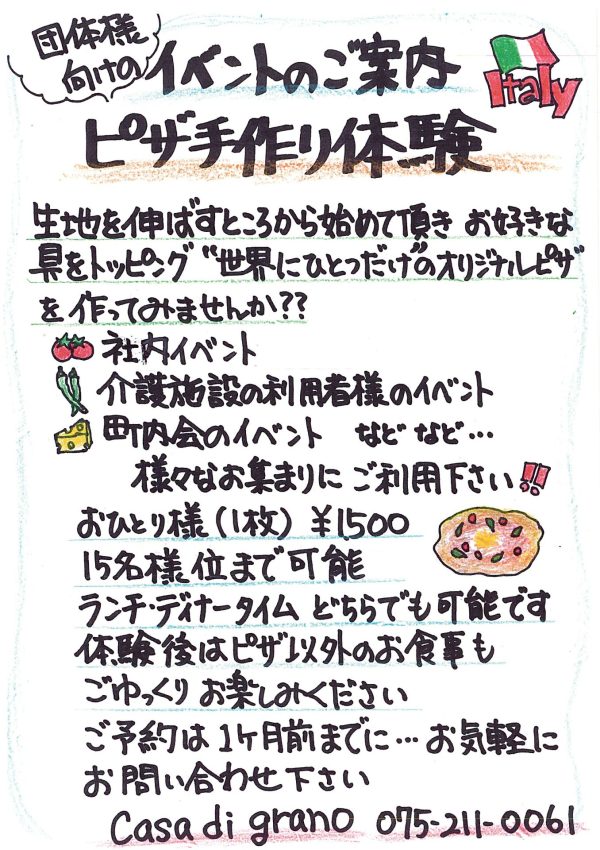 団体様
向けの
イベントのご案内
Italy
ピザ手作り体験
生地を伸ばすところから始めて頂き お好きな
具をトッピング "世界にひとつだけ"のオリジナルピザ
を作ってみませんか??
社内イベント
介護施設の利用者様のイベント
町内会のイベント などなど…
様々なお集まりにご利用下さい!!
おひとり様(1枚) ¥1,500
15名様位まで可能
ランチ・ディナータイム どちらでも可能です
体験後はピザ以外のお食事も
ごゆっくりお楽しみください
ご予約は1ケ月前までに…お気軽に
お問い合わせ下さい
Casa di grano 075-211-0061